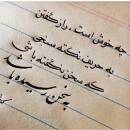 چه خوش است راز گفتن
به حریف نکته سنجی
که سخن نگفته باشی
به سخن رسیده باشد